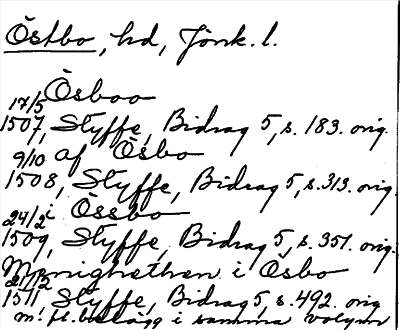 Östbo, hd, Jönk. l.
Ösboo
17/5
1507, Styffe, Bidrag 5, s. 183. orig.
9/10 af Ösbo
1508, Styffe, Bidrag 5, s. 313. orig.
24/2 i Össbo
1509, Styffe, Bidrag 5, s. 351. orig.
Menighethen i Ösbo
1511 Styffe, Bidrag 5, s. 492. orig
m. fl. belägg i samma volym